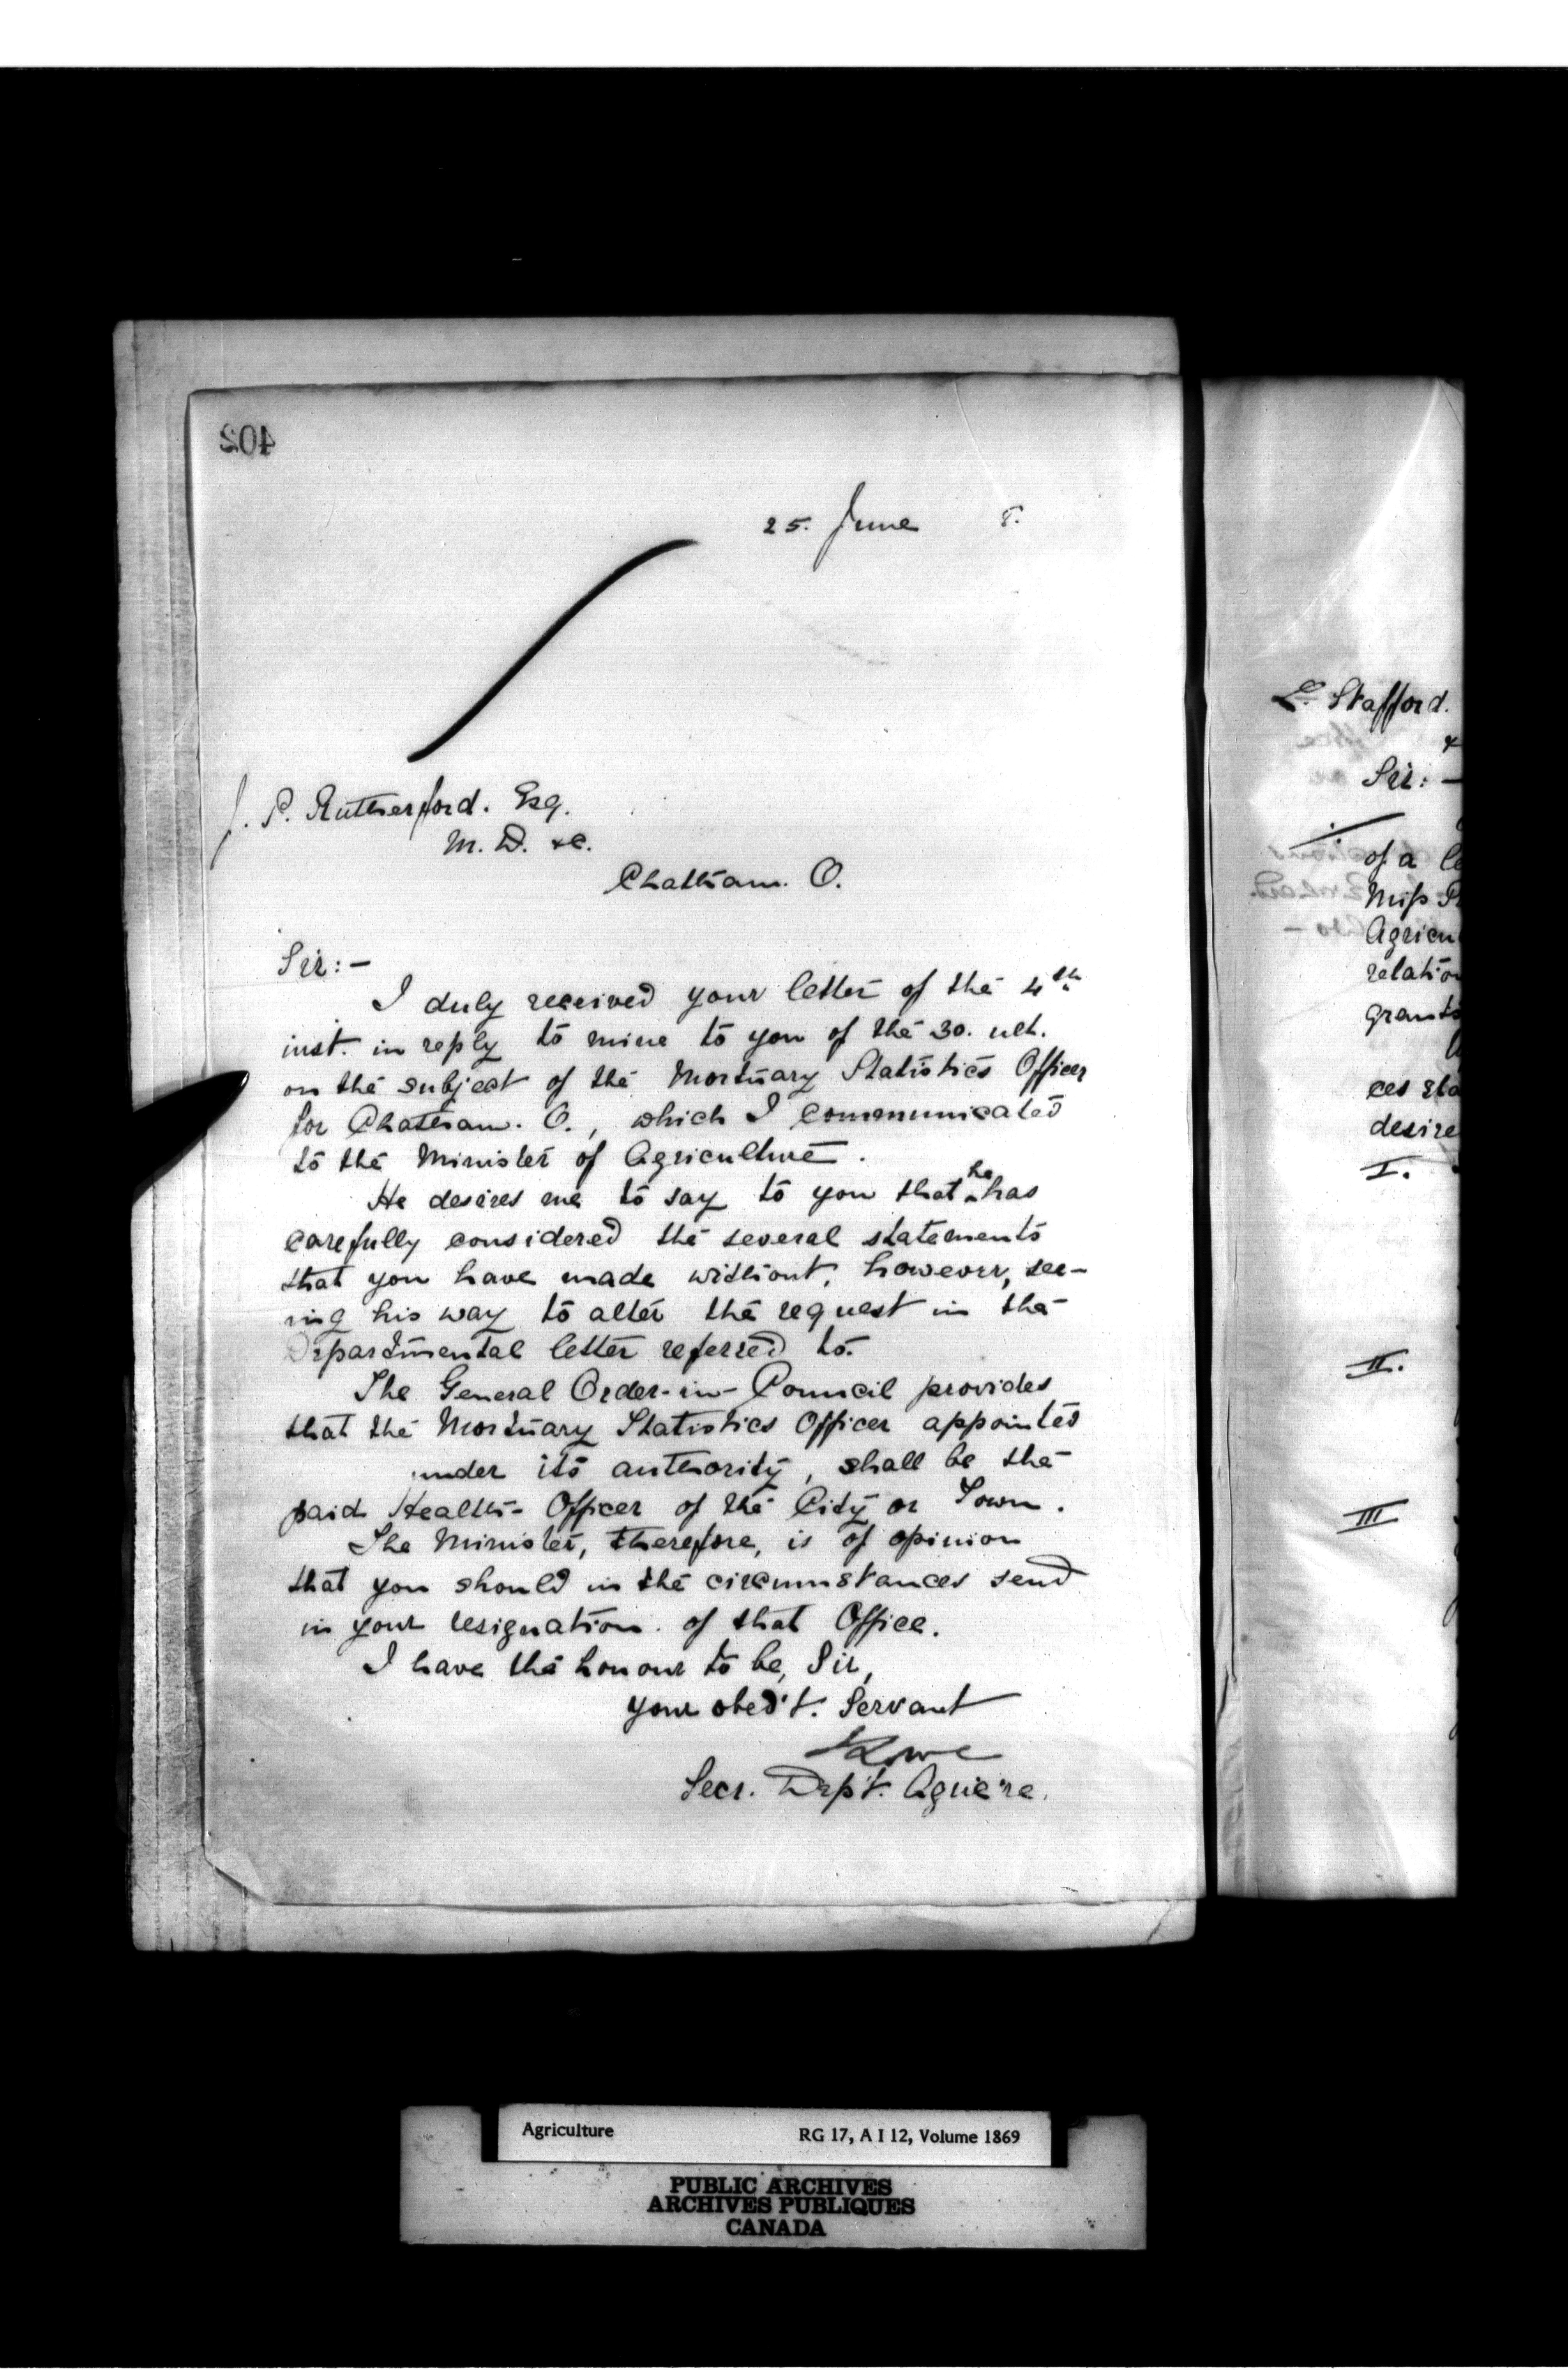 402
25. June 8.
J. P. Rutherford. Esq.
M. D. &c.
Chatham. O.
Sir:—
I duly received your letter of the 4th
inst. in reply to mine to you of the 30. ult.
on the subject of the Mortuary Statistics Officer
for Chatham. O., which I communicated
to the Minister of Agriculture.
He desires me to say to you that he has
carefully considered the several statements
that you have made without, however, see-
ing his way to alter the request in the
Departmental letter referred to.
The General Order-in-Council provides
that the Mortuary Statistics Officer appointed
under its authority, shall be the
paid Health-Officer of the City or Town.
The Minister, therefore, is of opinion
that you should in the circumstances send
in your resignation of that Office.
I have the honour to be, Sir,
your obed't. Servant
Lowe
Secr. Dep't. Agric're.
L. Stafford.
Sir:—
of a
Miss
Agricu
relation
grants
ces sta
desire
I.
II.
III
Agriculture RG 17, A I 12, Volume 1869
PUBLIC ARCHIVES
ARCHIVES PUBLIQUES
CANADA